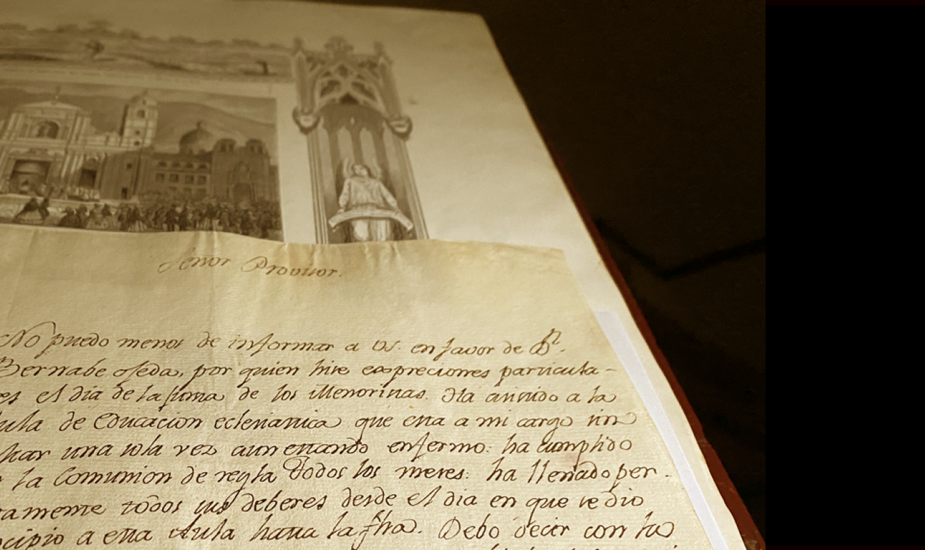 Señor Provisor.
No puedo menos de informar a VS. en favor de Dn.
Bernabe Ojeda, por quien hice expreciones particula-
es el dia de la firma de los Menoristas. Ha asistido a la
ula de Educacion eclesiastica que esta a mi cargo sin
una sola vez aun estando enfermo: ha cumplido
la Comunion de regla todos los meses: ha llenado per-
tamente todos sus deberes desde el dia en que se dio
cipio a esta Aula hasta la fha. Debo decir con